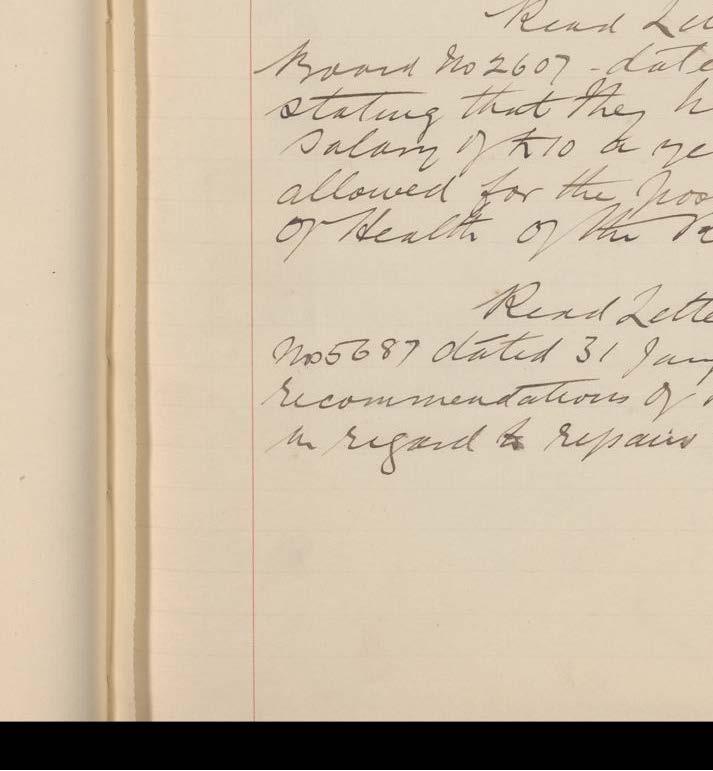 Read Let
Board No 2607 - date
stating that they h
Salary of £10 a ye
allowed for the pos
of Health of the
Read Lette
No 5687 dated 31 Jany
recommendations of
in regard to repairs